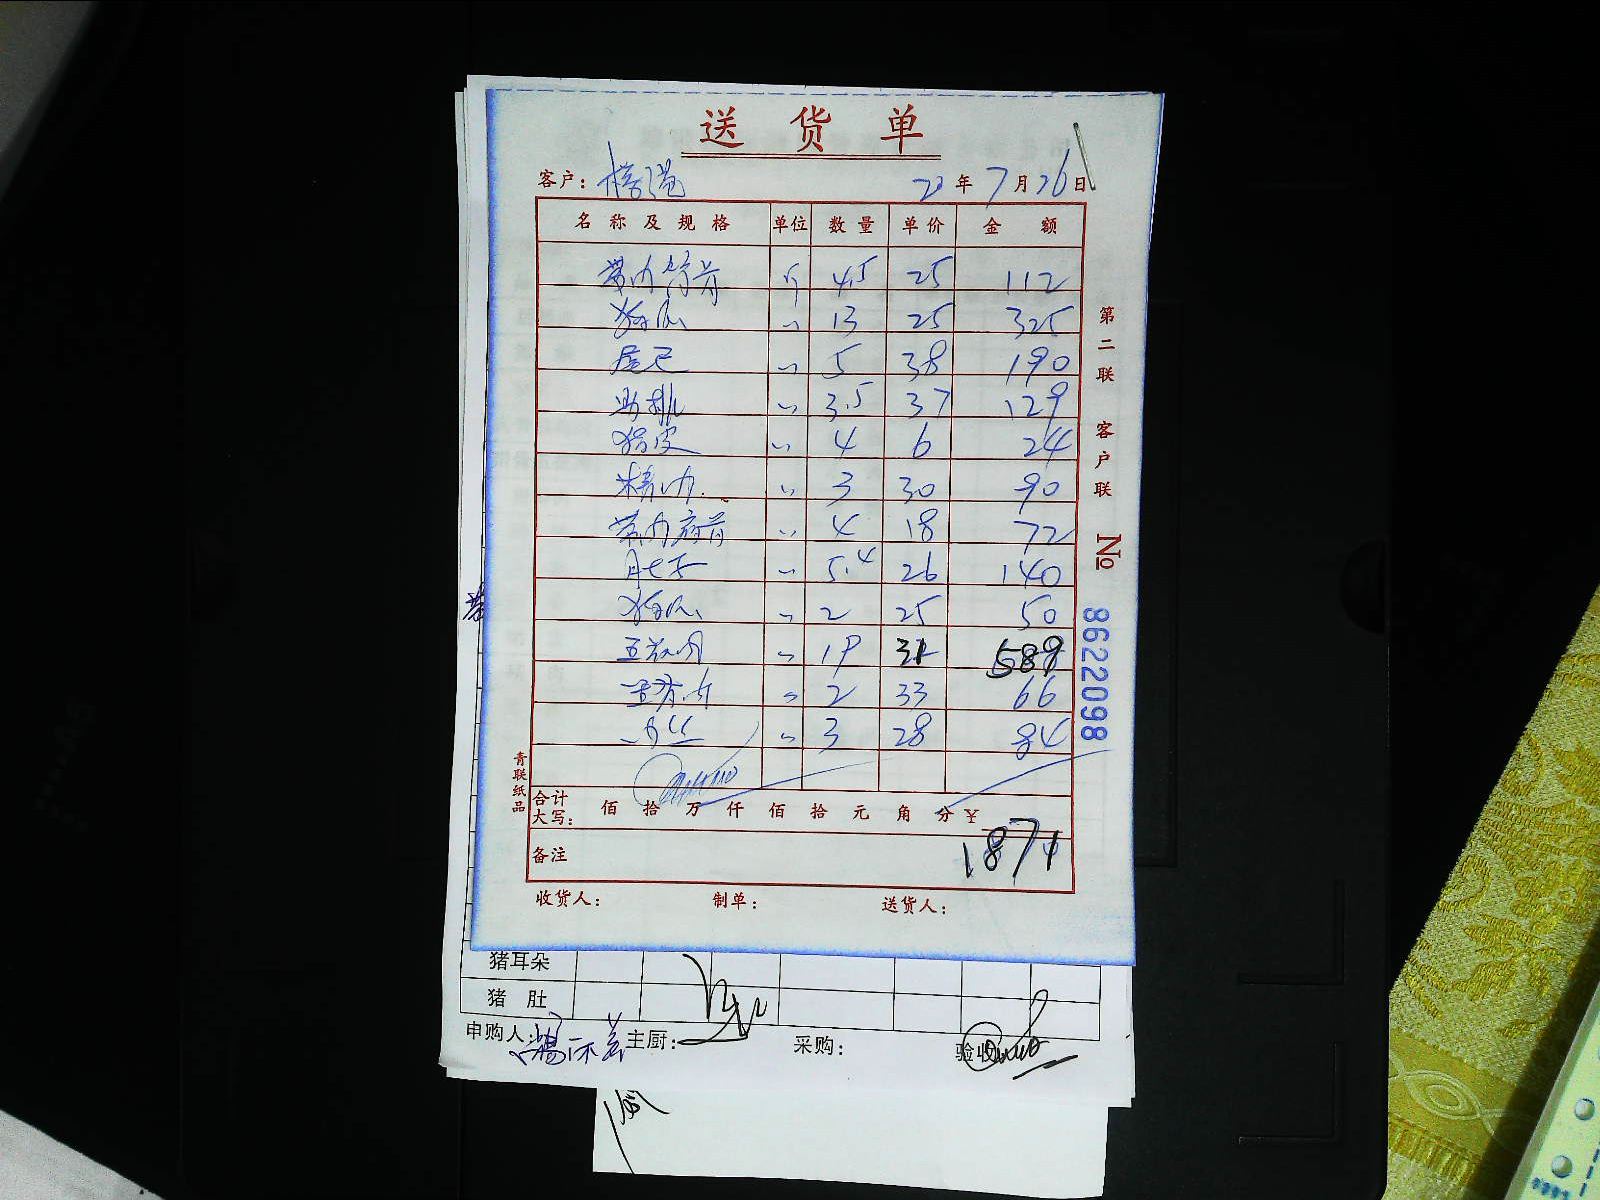 送货单
客户： 20年7月26日
名称及规格 单位 数量 单价 金额
斤 4.5 25 112
〃 13 25 325
尾巴 〃 5 38 190
肋排 〃 3.5 37 129
猪皮 〃 4 6 24
精肉 〃 3 30 90
〃 4 18 72
肚子 〃 5.4 26 140
〃 2 25 50
五花肉 〃 19 31 589
〃 2 33 66
肉丝 〃 3 28 84
合计大写： 佰拾万仟佰拾元角分 ¥
1871
备注
收货人： 制单： 送货人：
第二联 客户联
No 8622098
青联纸品
猪耳朵
猪肚
申购人： 主厨： 采购： 验收